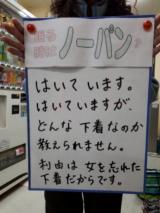 寝る
時は
ノーパン♪
はいています。
はいていますが、
どんな下着なのか
教えられません。
利由は女を忘れた
下着だからです。